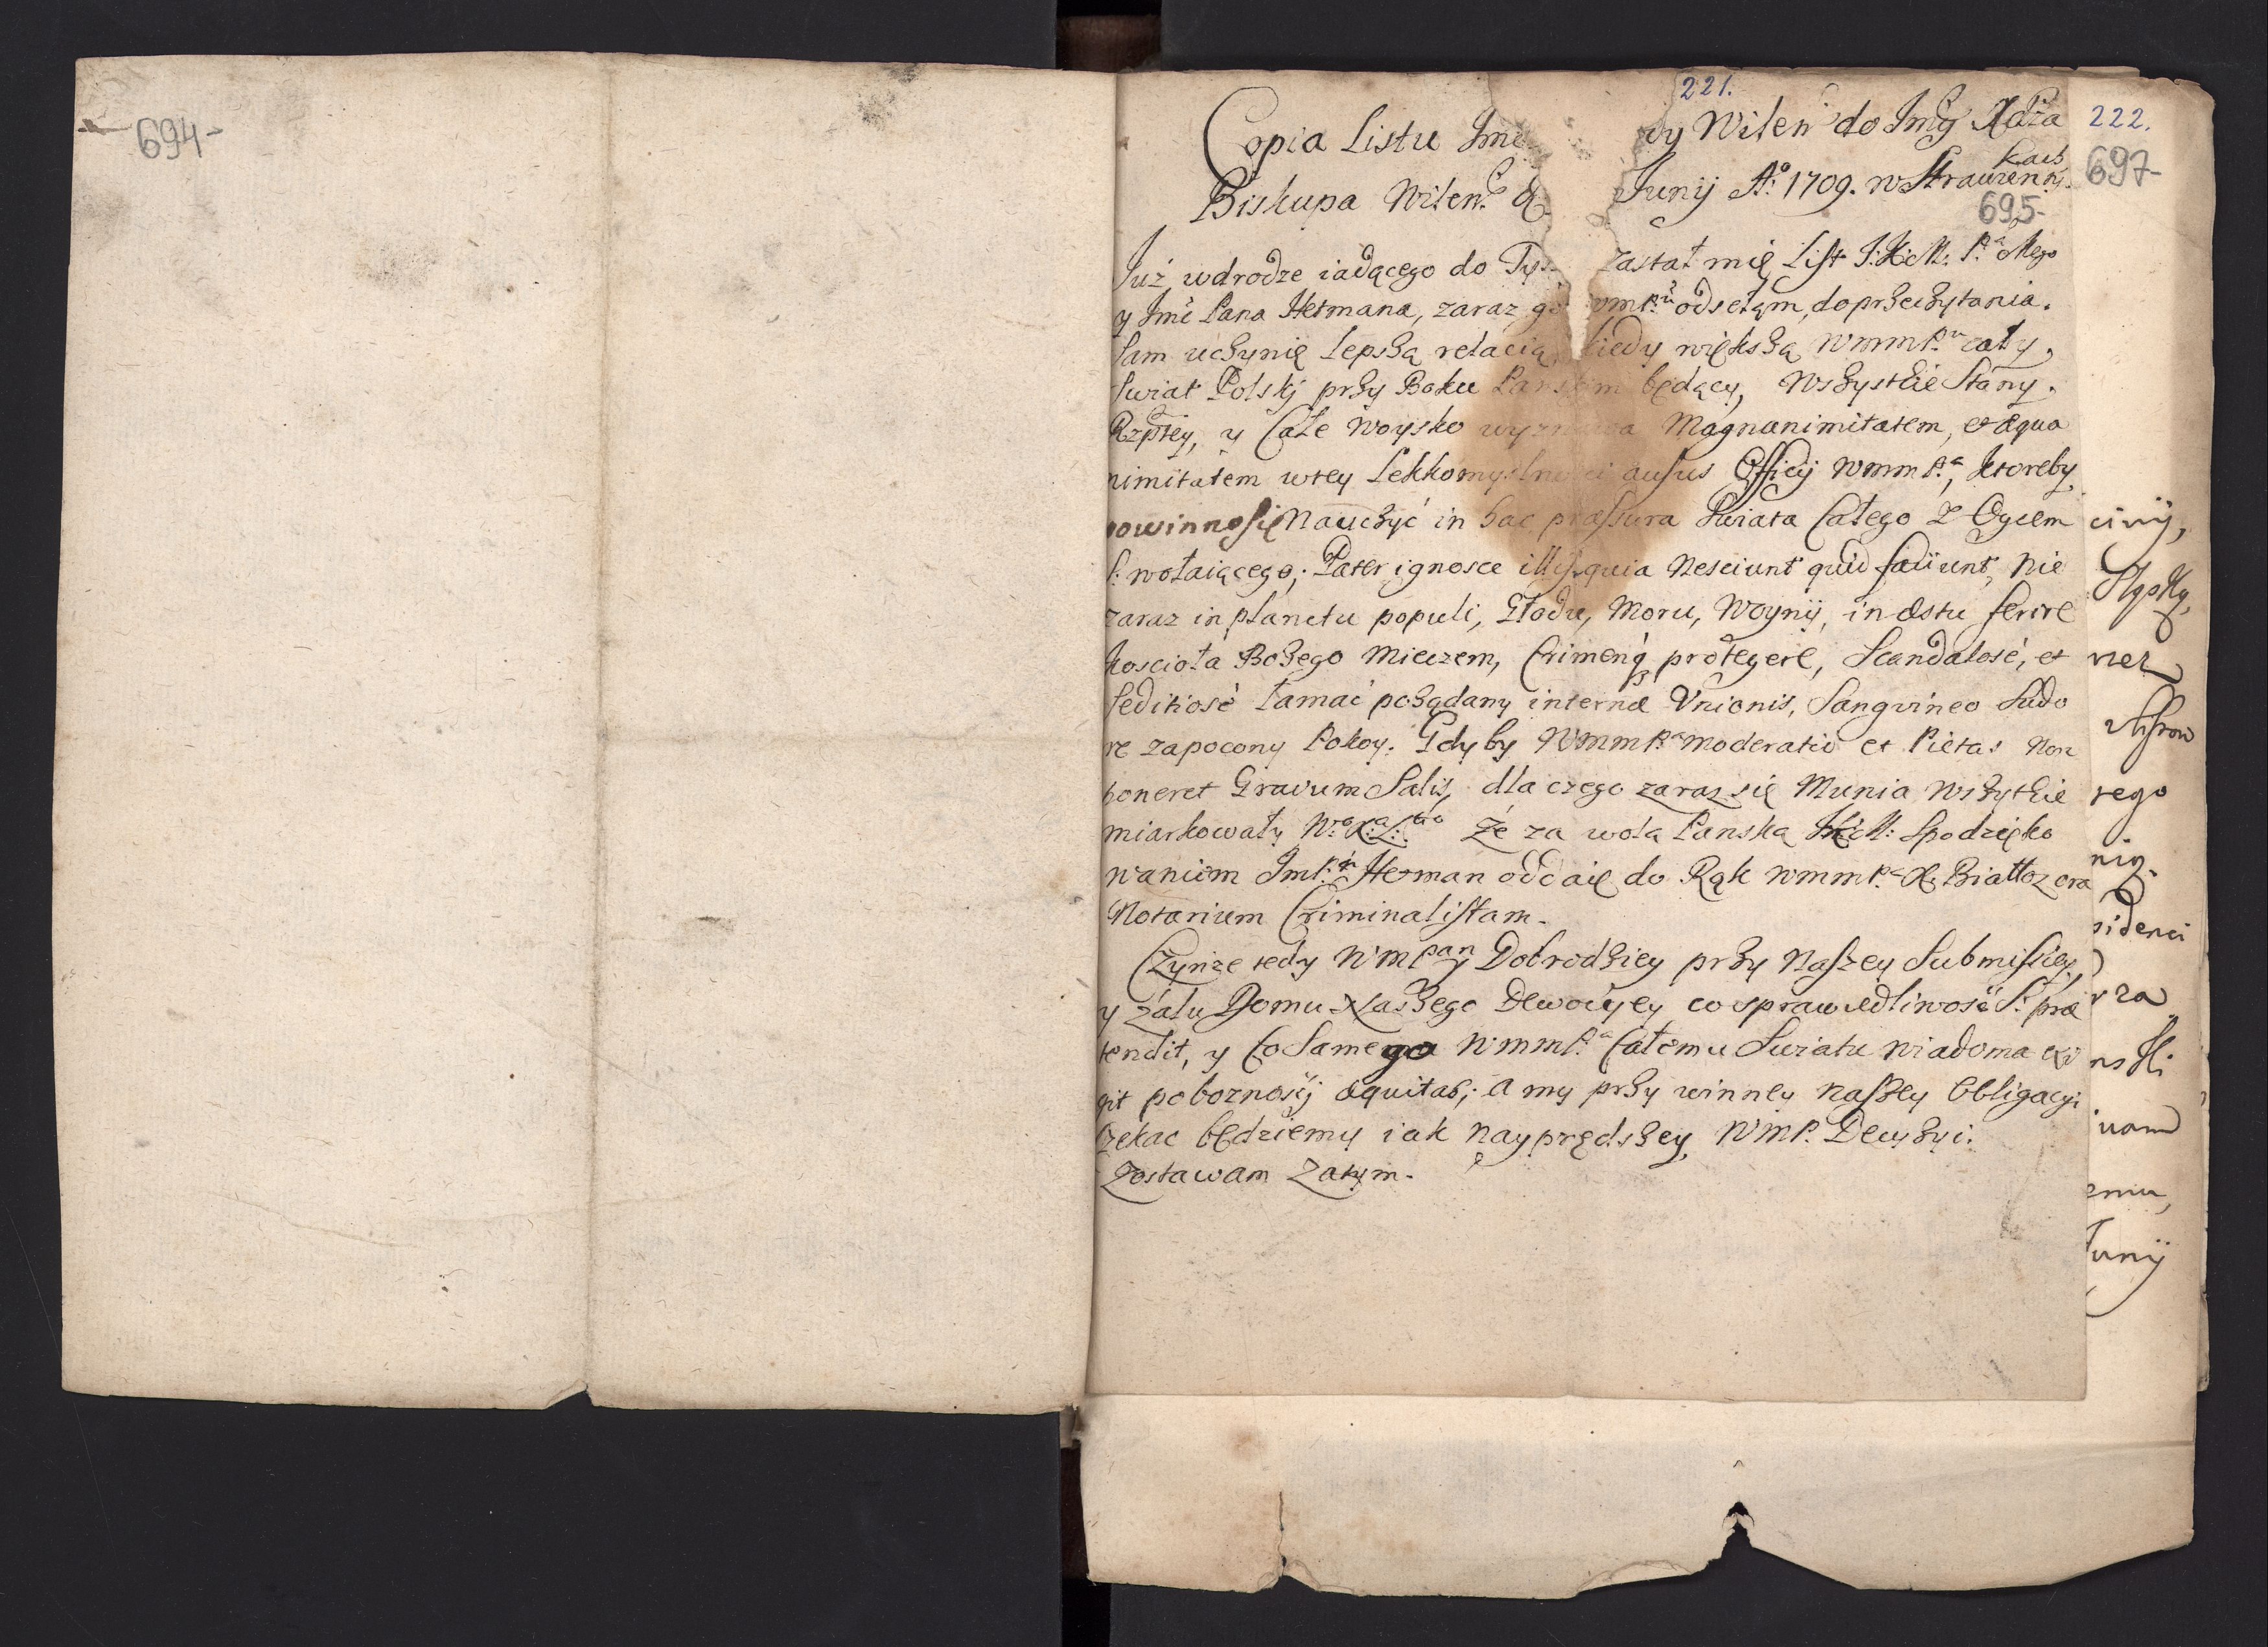 694-
221.
Copia Listu Jmć wy Wileń do Jmći Xdza
Biskupa Wileń: Junij A:o 1709. w Strawien
kach
695-
Już wdrodze iadącego do zastał mię List J:K:M: P.a Mego
y Jmć Pana Hetmana, zaraz go wmP.u odsełąm, do przeczytania.
Sam uczynię lepszą relacią, kiedy większą WmmP.u cały,
swiat Polskj przy Boku Panskim będący, Wszystkie Stany.
Rzptey, y Całe Woysko wyznawa Magnanimitatem, et æqua
nimitatem wtey Lekkomyslnosci ausus Officij WmmP.a, ktoreby
powinno się Nauczyć in hac præssura Swiata Całego z Oycem
S: wołaiącego; Pater ignosce illis, quia Nesciunt quid faciunt, Nie
zaraz in planctu populi, Głodu, Moru, Woyny, in æstu ferire
koscioła Bożego Mieczem, Crimenq3 protegere, Scandalosé, et
seditiosé łamać pożądany internæ Unionis, Sangvineo Sudo
re zapocony Pokoy. Gdyby WmmP.a Moderatio et Pietas Non
poneret Gravum Salis, dla czego zaraz się Munia Wszytkie
miarkowały Że za wolą Panską JKM: Spodzięko
waniem JmP.n Hetman oddaię do Rąk WmmP.a X. Białłozora
Notarium Criminalistam.
Czyńże tedy WmPan Dobrodziey przy Naszey Submissiey,
y żalu Domu Naszego Dewocyey co sprawiedliwość S: præ
tendit, y Co Samego WmmP.a Całemu Swiatu Wiadoma exi
git pobozność æquitas; a my przy winney naszey Obligacyi
Czekac będziemy iak Nayprędszey, WmP. Decyzyi.
Zostawam Zatym.
222.
697-
rego
nią.
sidenci
rza
nski
emu,
Junij